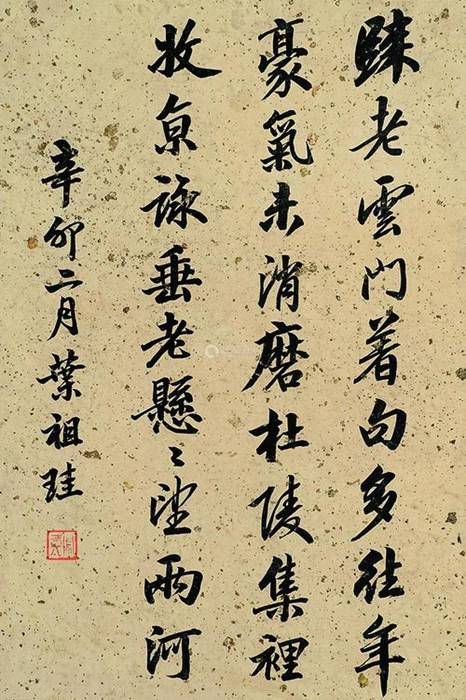 歸老雲門着句多往年
豪氣未消磨杜陵集裡
收京詠垂老懸〻望兩河
辛卯二月葉祖珪